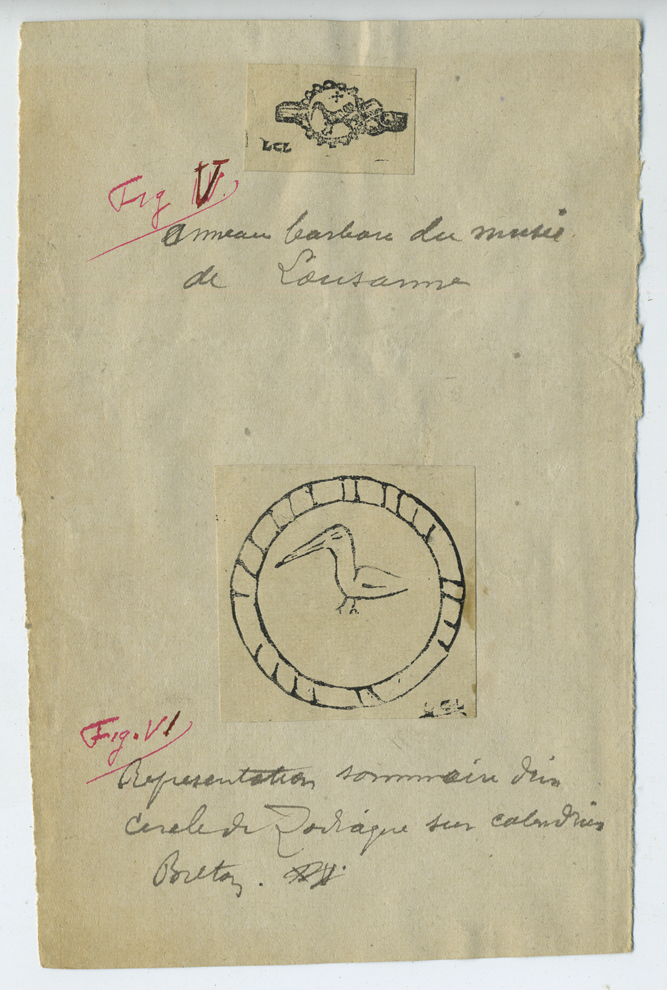 Fig V.
Anneau barbare du musée
de Lousanne
Fig. VI
Representation sommaire d'un
cercle de Zodiaque sur calendrier
Breton.